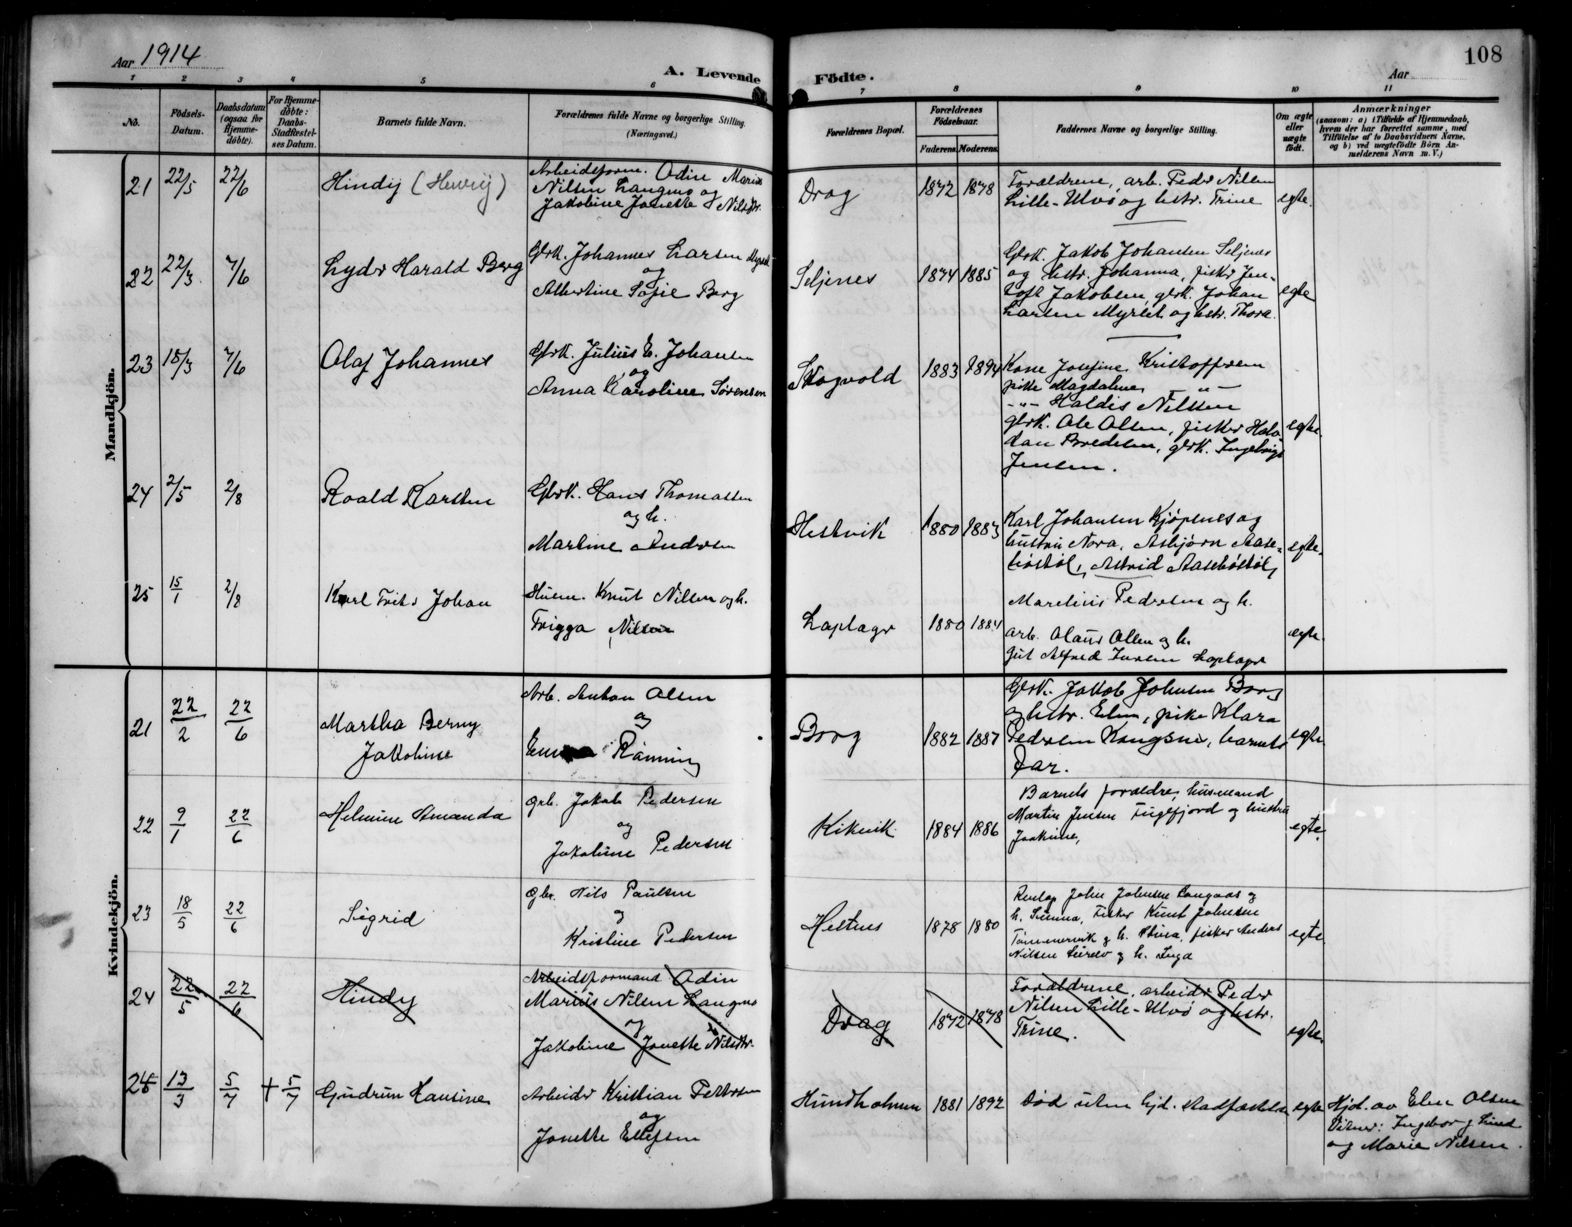 Aar 1914
A. Levende Födte.
Aar
108
1 2 3 4 5 6 7 8 9 10 11
No.
Födsels-Datum.
Daabsdatum (ogsaa for Hjemme-döbte).
For Hjemme-döbte: Daabs-Stadfæstel-ses Datum.
Barnets fulde Navn.
Forældrenes fulde Navne og borgerlige Stilling. (Næringsvei.)
Forældrenes Bopæl.
Forældrenes Födselsaar.
Faderens. Moderens.
Faddernes Navne og borgerlige Stilling.
Om ægte eller uægte födt.
Anmærkninger
(saasom: a) i Tilfælde af Hjemmedaab, hvem der har forrettet samme, med Tilföielse af to Daabsvidners Navne, og b) ved uægtefödte Börn An-melderens Navn m. V.)
Mandkjön.
21 22/5 22/6 Hindij (Henrij)
Arbeidsform. Odin Marius
Nilsen Langmo og
Jakobine Jonette Nilsdtr.
Drag 1872 1878
Forældrene, arb. Peder Nilsen
Lille-Ulvö og hstr. Trine
egte.
22 22/3 7/6 Lyder Harald Berg
Gbrk. Johannes Larsen
og
Albertine Sofie Berg
Seljenes 1874 1885
Gbrk. Jakob Johansen Seljenes
og hstr. Johanna, fisker Jen-
toft Jakobsen, gbrk. Johan
Larsen Myrlet og hstr. Thora.
egte
23 15/3 7/6 Olaf Johannes
Gbrk. Julius E. Johansen
og
Anna Karoline Sörensen
Skogvold 1883 1894
Kone Josefine Kristoffersen
pike Magdalene -"-
-"- Haldis Nilsen
gbrk. Ole Olsen, fisker Halv-
dan Bredesen, gbrk. Ingebrigt
Jensen.
egte.
24 2/5 2/8 Roald Karsten
Gbrk. Hans Thomassen
og h.
Martine Andersen
Hestvik 1880 1883
Karl Johansen Kjöpsnes og
hustru Nora, Asbjörn Aase-
böstöl, Astrid Aaseböstöl,
egte.
25 15/1 2/8 Karl Frits Johan
Husm. Knut Nilsen og h.
Frigga Nilsen
Laplæger 1880 1884
Marelius Pedersen og h.
arb. Olaus Olsen og h.
Gut Alfred Larsen Laplæger
egte.
Kvindekjön.
21 22/2 22/6 Martha Berny
Jakobine
Arb. Anton Olsen
og
Emma Rönning
Borg 1882 1887
Gbrk. Jakob Johnsen Borg
og hstr. Elen, pike Klara
Pedersen Kongsnes, barnets
Far.
egte
22 9/1 22/6 Helmine Amanda
Grb. Jakob Pedersen
og
Jakobine Pedersen
Kikvik 1884 1886
Barnets forældre, husmand
Martin Jensen Fuglfjord og hustru
Joakine,
egte.
23 18/5 22/6 Sigrid
Gbr. Nils Paulsen
og
Kristine Pedersen
Heltnes 1878 1880
h. Simma, Fisker Knut Johnsen
Tömmervik og h. Stina, fisker Anders
Nilsen og h. Inga
egte
24 22/5 22/6 Hindy
Arbeidsformand Odin
Marius Nilsen Langmo
og
Jakobine Jonette Nilsdtr.
Drag 1872 1878
Forældrene, arbeider Peder
Nilsen Lille-Ulvö og hstr.
Trine.
egte.
24 13/3 5/7 + 5/7 Gudrun Hansine
Arbeider Kristian Pettersen
og
Jonette Ellefsen
Hundholmen 1881 1892
Död uten hjd. stadfæstelse
egte
Hjd. av Elen Olsen
Vidner: Ingeborg Lind
og Marie Nilsen.